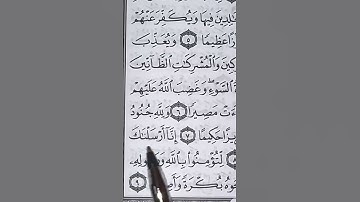 لِدِينَ فِيهَا وَيُكَفِّرَ عَنْهُمْ
زًا عَظِيمًا ٥ وَيُعَذِّبَ
كِينَ وَالْمُشْرِكَاتِ الظَّانِّينَ
السَّوْءِ وَغَضِبَ اللَّهُ عَلَيْهِمْ
ءَتْ مَصِيرًا ٦ وَلِلَّهِ جُنُودُ
زًا حَكِيمًا ٧ إِنَّا أَرْسَلْنَاكَ
لِتُؤْمِنُوا بِاللَّهِ وَرَسُولِهِ
وهُ بُكْرَةً وَأَصِ ٩